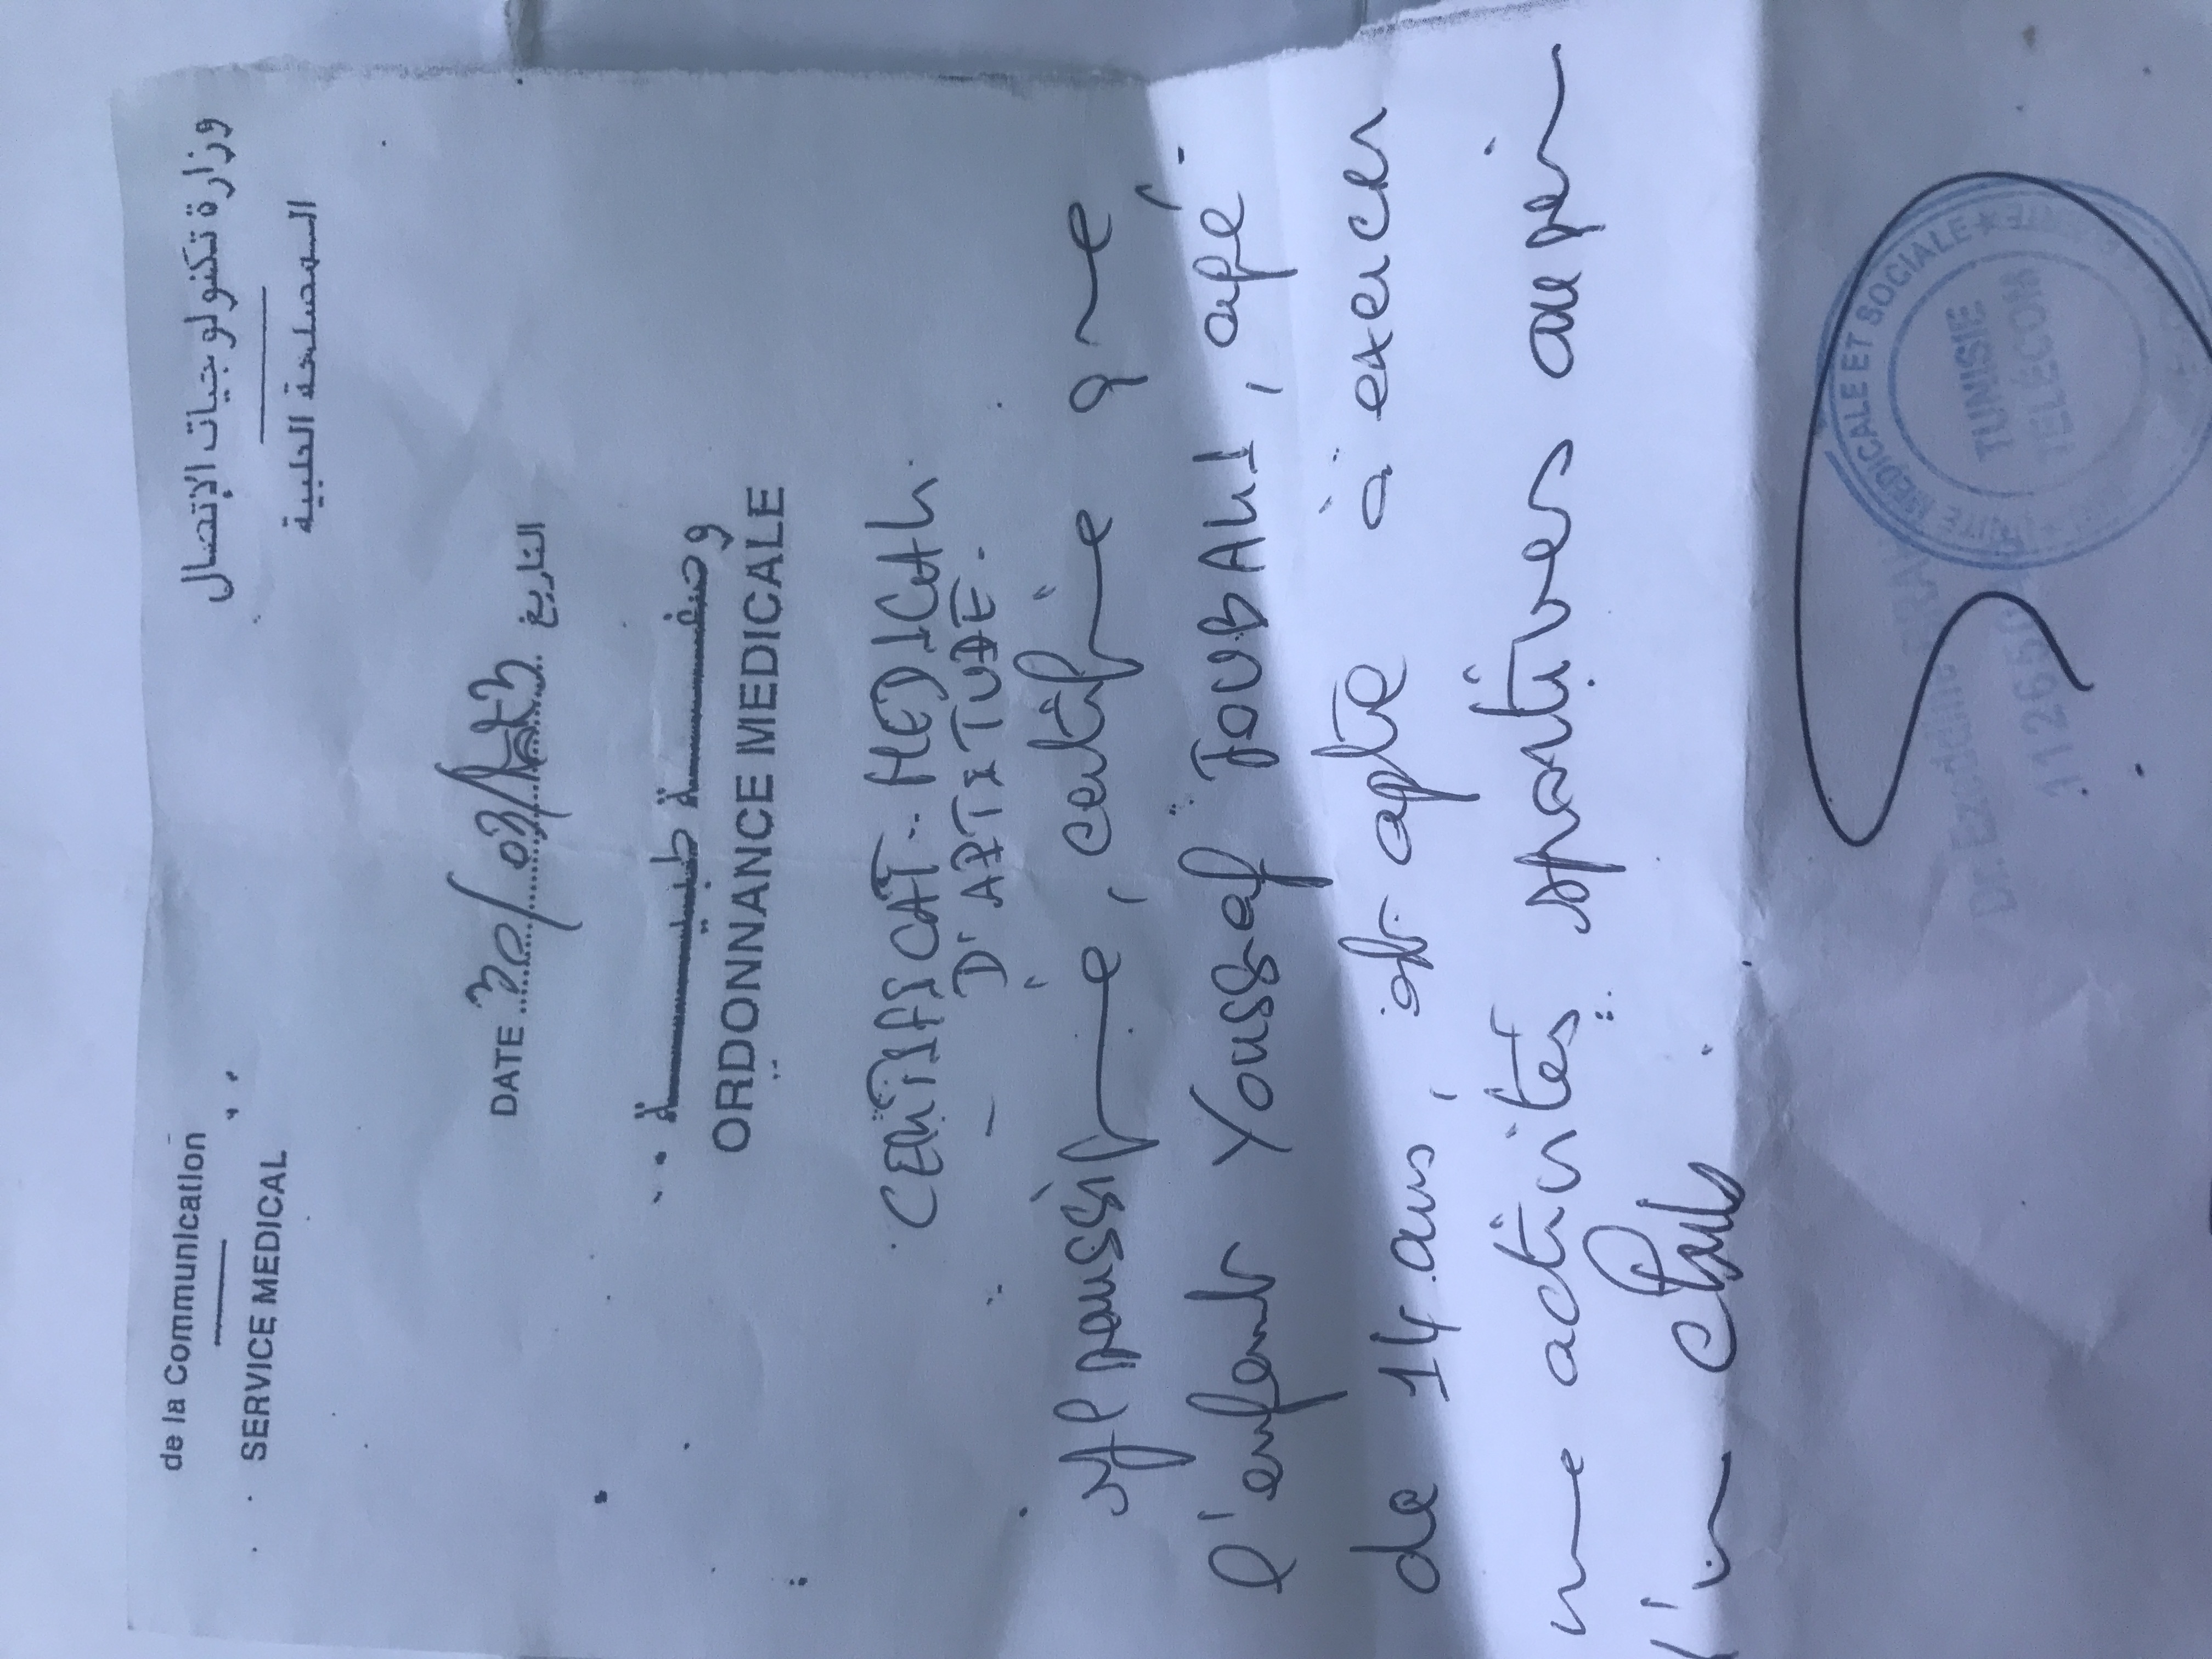 de la Communication
SERVICE MEDICAL
وزارة تكنولوجيات الإتصال
المصلحة الطبية
DATE التاريخ
وصفة طبية
ORDONNANCE MEDICALE
CERTIFICAT MEDICAL
D'APTITUDE.
, certifie que
l'enfant Youssef JOUBALI, agé
de 14 ans, est apte à exercer
une activités sportives au sein
d'un Club.
UNITE MEDICALE ET SOCIALE
TUNISIE
TELECOM
Dr. Ezzddine
11265